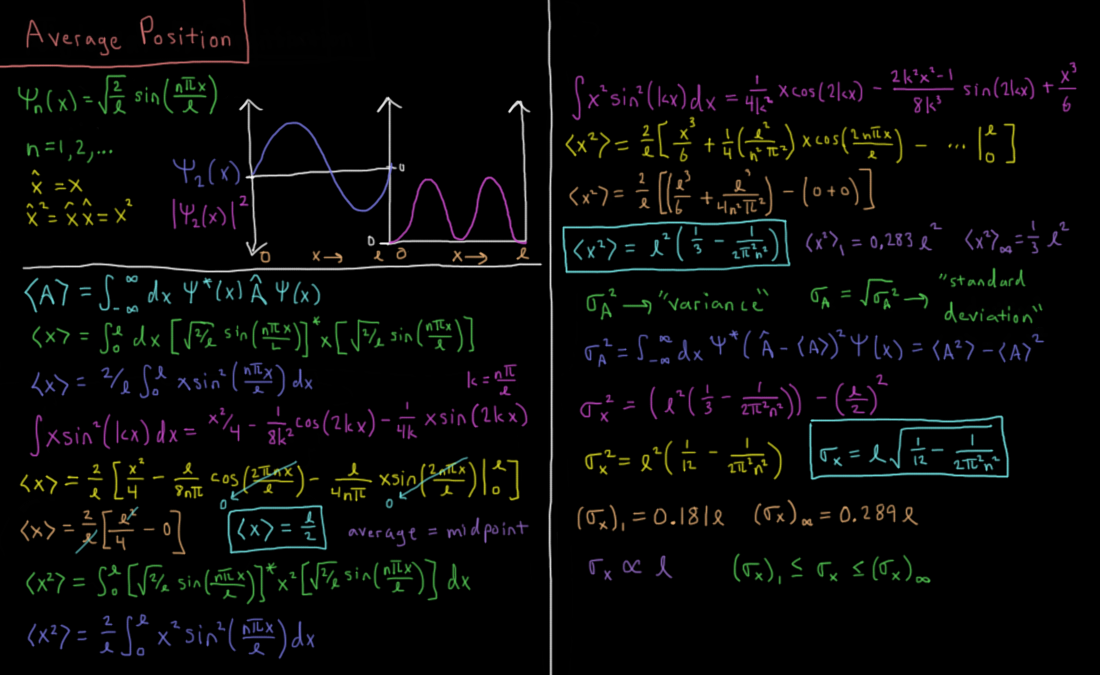 Average Position
Ψₙ(x) = √(2/ℓ) sin(nπx/ℓ)
n = 1, 2, ...
x̂ = x
x̂² = x̂ x̂ = x²
Ψ₂(x)
|Ψ₂(x)|²
0
0
0 x→ ℓ 0 x→ ℓ
⟨A⟩ = ∫₋∞^∞ dx Ψ*(x) Â Ψ(x)
⟨x⟩ = ∫₀^ℓ dx [√(2/ℓ) sin(nπx/2)]* x [√(2/ℓ) sin(nπx/ℓ)]
⟨x⟩ = 2/ℓ ∫₀^ℓ x sin²(nπx/ℓ) dx
k = nπ/ℓ
∫x sin²(kx) dx = x²/4 - 1/8k² cos(2kx) - 1/4k x sin(2kx)
⟨x⟩ = 2/ℓ [x²/4 - ℓ/8nπ cos(2πnx/ℓ) - ℓ/4nπ x sin(2nπx/ℓ) |₀^ℓ]
0 0
⟨x⟩ = 2/ℓ [ℓ²/4 - 0]
⟨x⟩ = ℓ/2
average = midpoint
⟨x²⟩ = ∫₀^ℓ [√(2/ℓ) sin(nπx/ℓ)]* x² [√(2/ℓ) sin(nπx/ℓ)] dx
⟨x²⟩ = 2/ℓ ∫₀^ℓ x² sin²(nπx/ℓ) dx
∫x² sin²(kx) dx = 1/4k² x cos(2kx) - (2k²x²-1)/8k³ sin(2kx) + x³/6
⟨x²⟩ = 2/ℓ [x³/6 + 1/4 (ℓ²/n²π²) x cos(2nπx/ℓ) - ... |₀^ℓ]
⟨x²⟩ = 2/ℓ [(ℓ³/6 + ℓ³/4n²π²) - (0+0)]
⟨x²⟩ = ℓ² (1/3 - 1/2π²n²)
⟨x²⟩₁ = 0.283 ℓ²
⟨x²⟩∞ = 1/3 ℓ²
σ_A² → "variance"
σ_A = √(σ_A²) → "standard
deviation"
σ_A² = ∫₋∞^∞ dx Ψ* (Â - ⟨A⟩)² Ψ(x) = ⟨A²⟩ - ⟨A⟩²
σₓ² = (ℓ² (1/3 - 1/2π²n²)) - (ℓ/2)²
σₓ² = ℓ² (1/12 - 1/2π²n²)
σₓ = ℓ √(1/12 - 1/2π²n²)
(σₓ)₁ = 0.181ℓ
(σₓ)∞ = 0.289 ℓ
σₓ ∝ ℓ
(σₓ)₁ ≤ σₓ ≤ (σₓ)∞